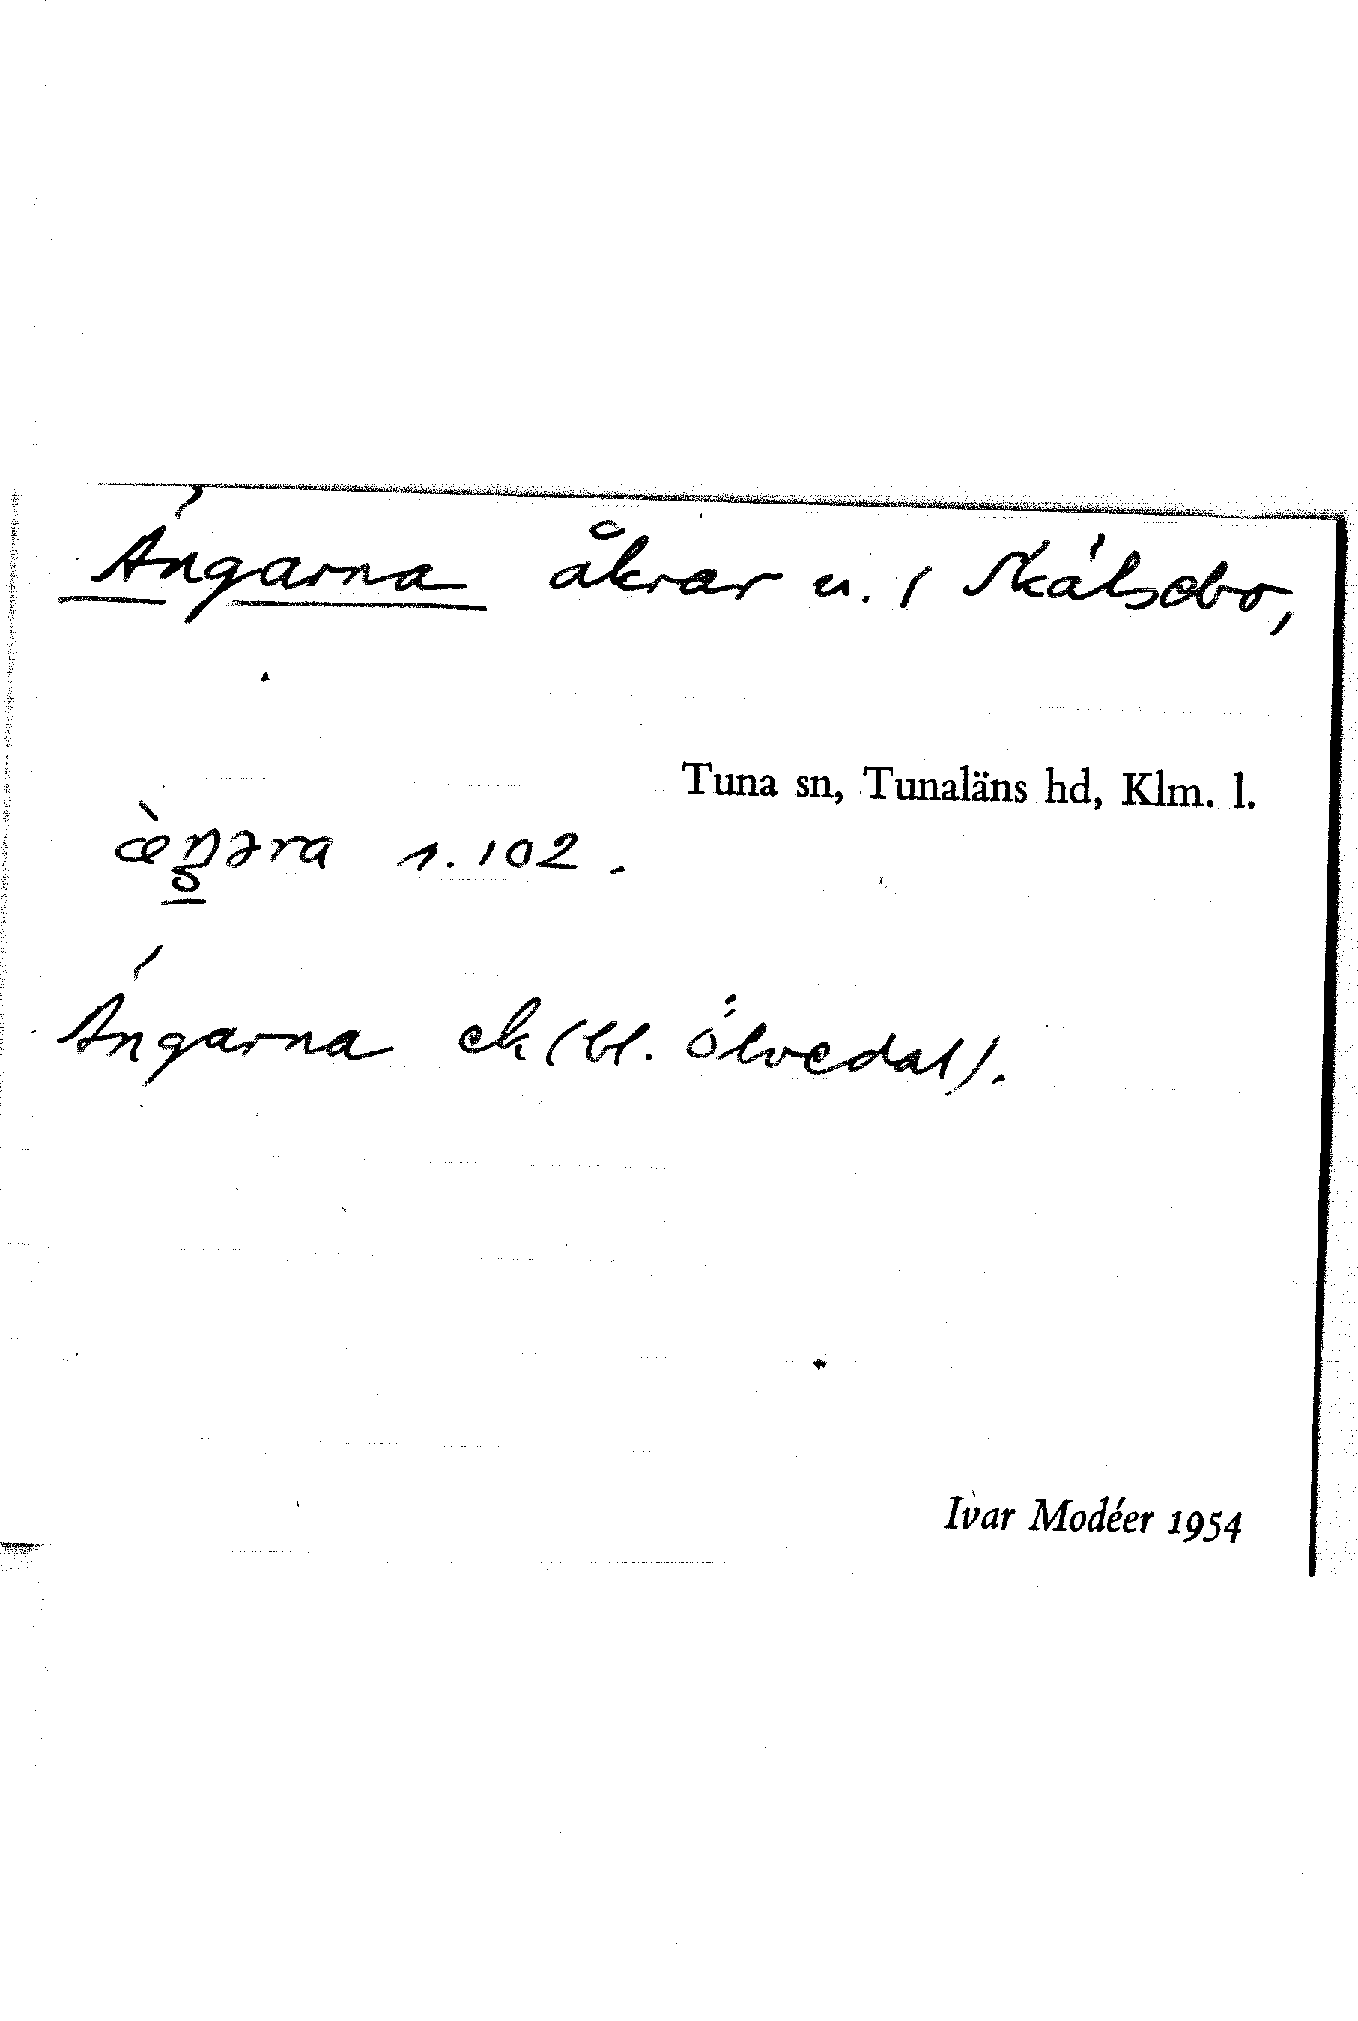 Ängarna åkrar u. / Skälsebo,
Tuna sn, Tunaläns hd, Klm. l.
æ̀ŋəra s. 102.
Ängarna ek (bl. Ölvedal).
Ivar Modéer 1954